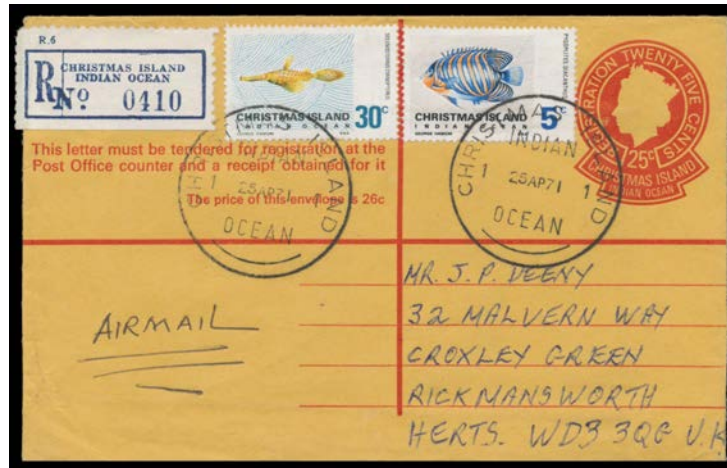 R.6
CHRISTMAS ISLAND
INDIAN OCEAN
R No 0410
CHRISTMAS ISLAND 30c
INDIAN OCEAN
CHRISTMAS ISLAND 5c
INDIAN OCEAN
REGISTRATION TWENTY FIVE CENTS
25c
CHRISTMAS ISLAND
INDIAN OCEAN
This letter must be tendered for registration at the
Post Office counter and a receipt obtained for it
The price of this envelope is 26c
CHRISTMAS ISLAND
INDIAN
1 25AP71 1
OCEAN
CHRISTMAS ISLAND
INDIAN
1 25AP71 1
OCEAN
AIRMAIL
MR. J. P. DEENY
32 MALVERN WAY
CROXLEY GREEN
RICKMANSWORTH
HERTS. WD3 3QG U.K